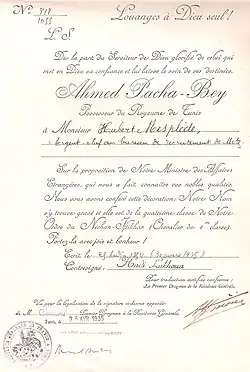 No 717
1055
Louanges à Dieu seul!
L S
De la part du Serviteur de Dieu glorifié, de celui qui
met en Dieu sa confiance et lui laisse le soin de ses destinées,
Ahmed Pacha-Bey
Possesseur du Royaume de Tunis
à Monsieur Hubert Mesplède,
Sergent-chef au bureau de recrutement de Metz
Sur la proposition de Notre Ministre des Affaires
Etrangères, qui nous a fait connaître vos nobles qualités
Nous vous avons conféré cette décoration. Notre Nom
s'y trouve gravé et elle est de la quatrième classe de Notre
Ordre du Nichan-Iftikhar (Chevalier de 1ère classe).
Portez-la avec joie et bonheur!
Ecrit le 25 (30 mars 1935)
Contresigné: Hadi Lakhoua
Pour traduction certifiée conforme:
Le Premier Drogman de la Résidence Générale,
Vu pour la légalisation de la signature ci-dessus apposée
de M. Premier Drogman à la Résidence Générale
Tunis, le 2 AVR 1935